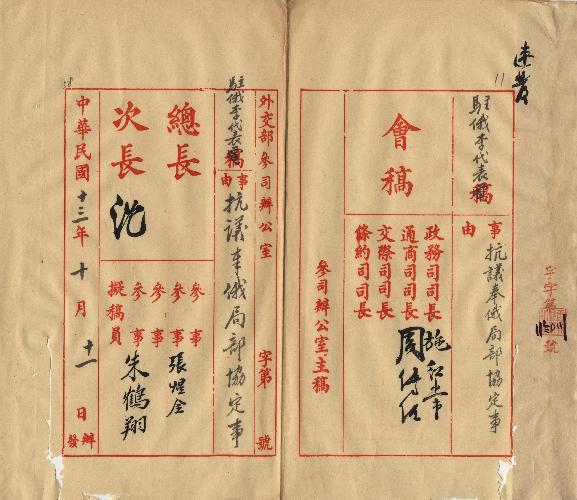 速發
駐俄李代表稿
事由 抗議奉俄局部協定事
會稿
政務司司長
通商司司長
交際司司長
條約司司長
施紹常
周傳經
參司辦公室主稿
字第 號
外交部參司辦公室 字第 號
駐俄李代表稿
事由 抗議奉俄局部協定事
總長
次長 沈
參事
參事 張煜全
參事
參事 朱鶴翔
擬稿員
中華民國十三年十月十一日辦發